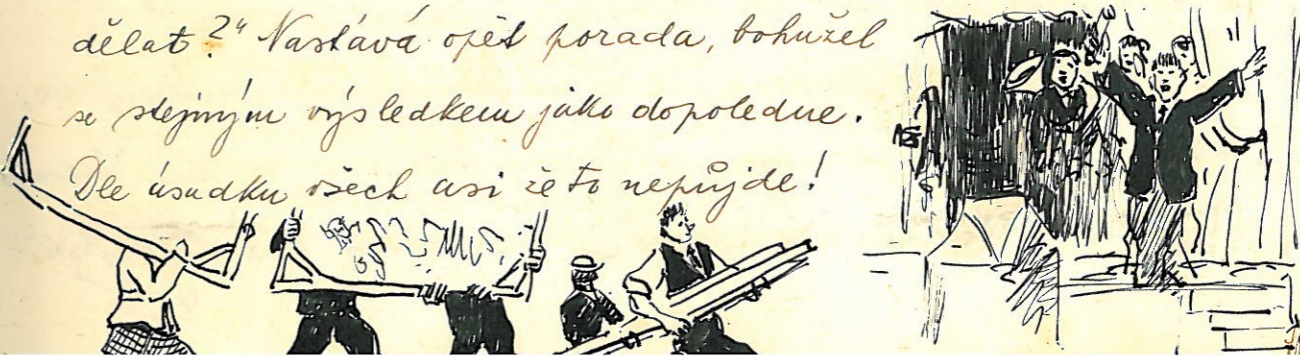 dělat?" Nastává opět porada, bohužel
se stejným výsledkem jako dopoledne.
Dle úsudku všech asi že to nepůjde!